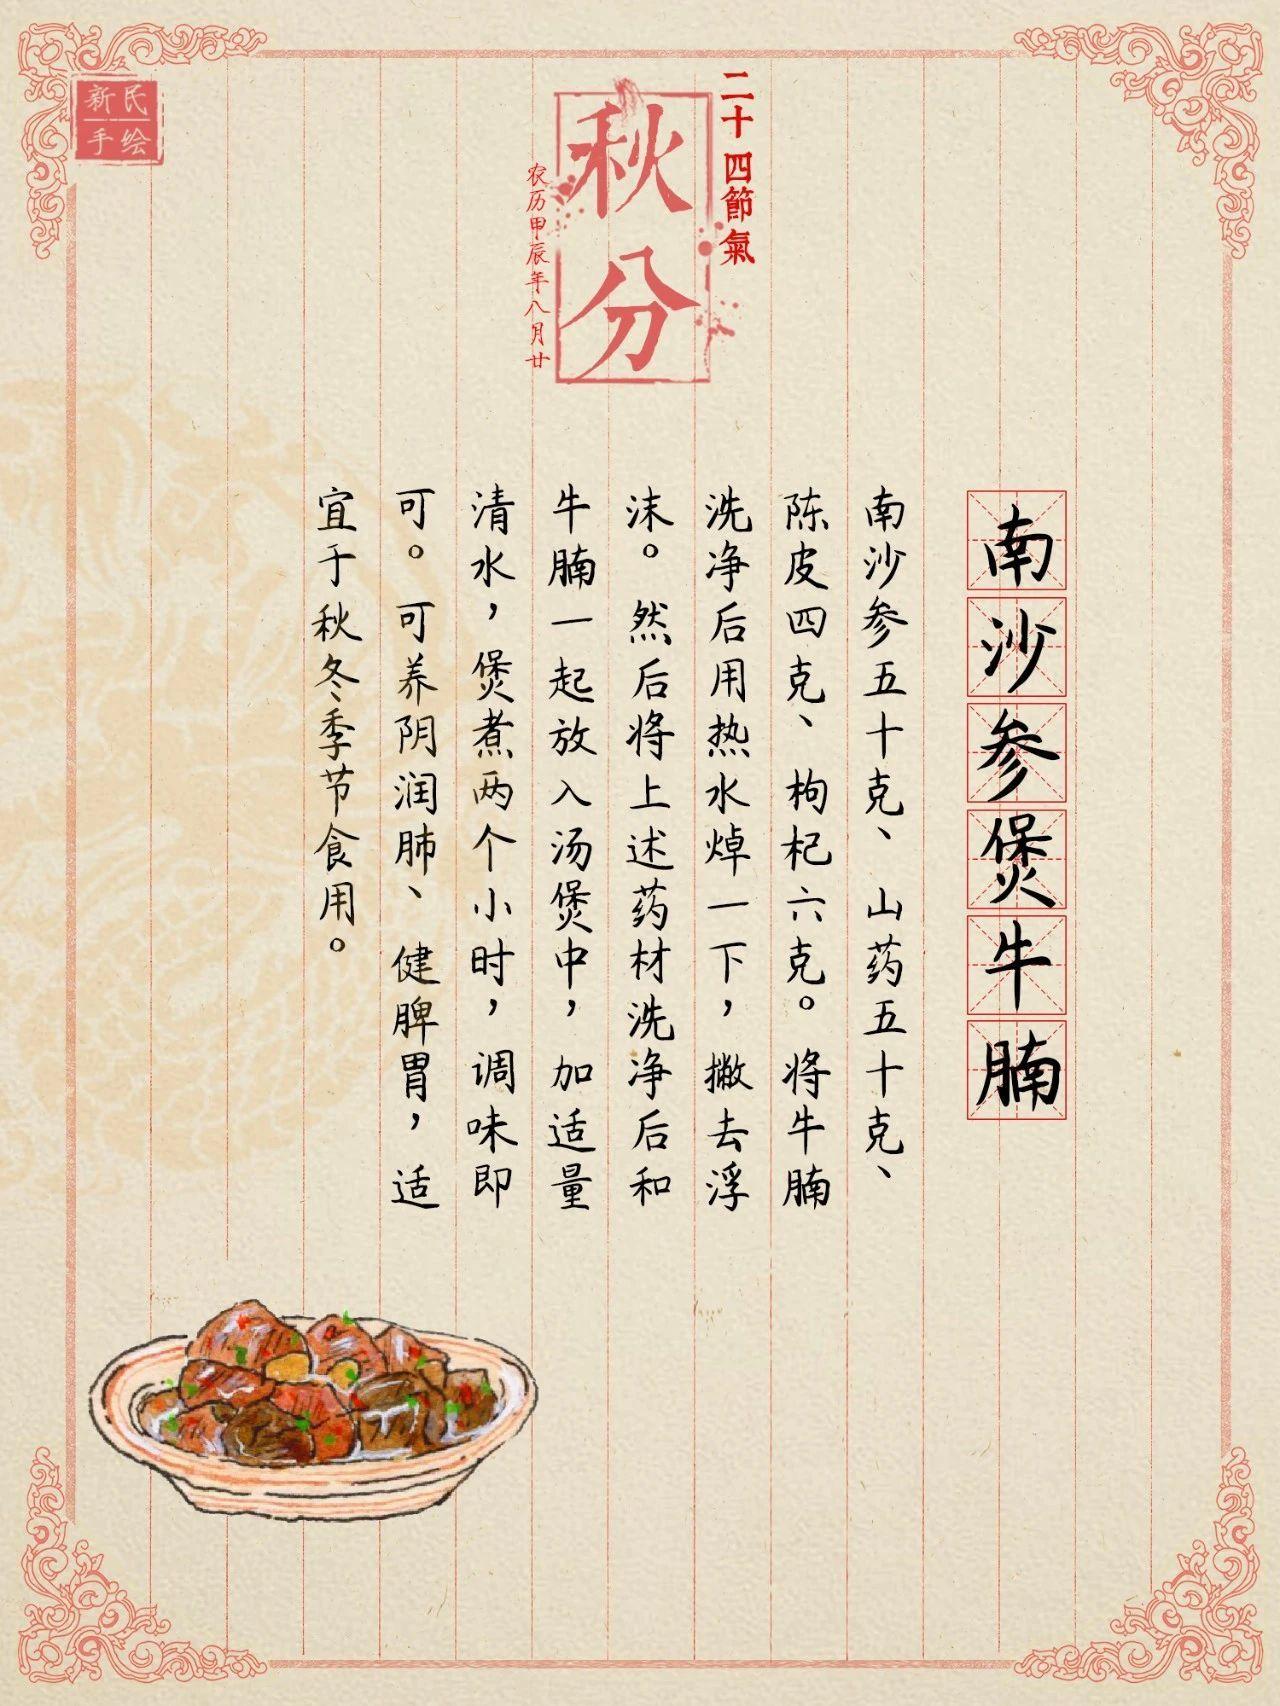 新民
手绘
二十四節氣
秋分
农历甲辰年八月廿
南沙参煲牛腩
南沙参五十克、山药五十克、
陈皮四克、枸杞六克。将牛腩
洗净后用热水焯一下，撇去浮
沫。然后将上述药材洗净后和
牛腩一起放入汤煲中，加适量
清水，煲煮两个小时，调味即
可。可养阴润肺、健脾胃，适
宜于秋冬季节食用。